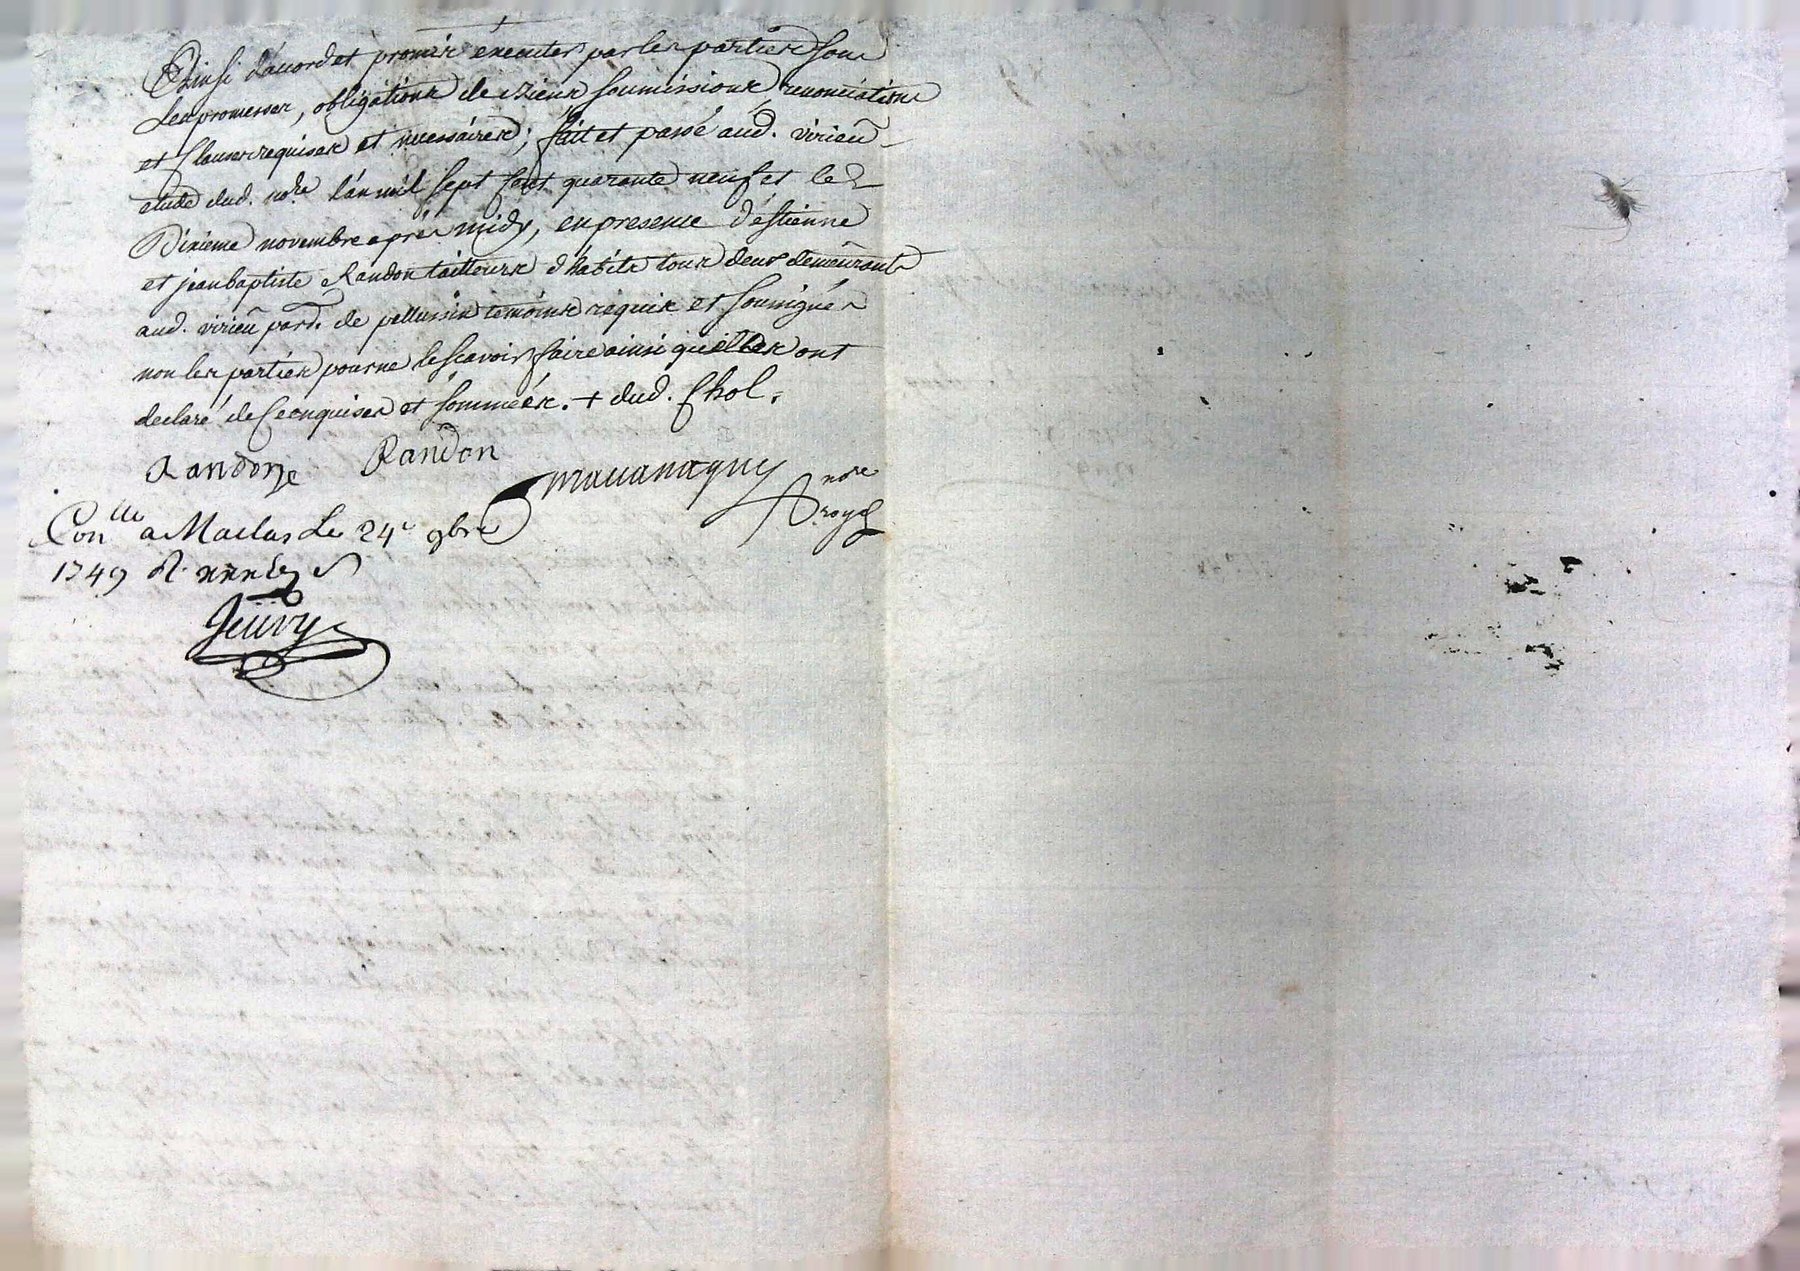 Ainsi d'accord et promis éxecuter par les parties sous
les promesses, obligations de biens soumissions renonciations
et Clauses requises et necessaires; fait et passé aud. virieu
etude dud. nore l'an mil sept Cent quarante neuf et le
Dixieme novembre aprés midy, en presence d'éstienne
et jean baptiste Randon tailleurs d'habits tous deux demeurants
aud. virieu parr. de pellussin témoins requis et soussignés
non les parties pour ne le scavoir faire ainsi qu'elles ont
declaré de Ce enquises et sommées. + dud. Chol.
Randon Randon
nore
royal
Conlle a Maclas Le 24e 9bre
1749 R.